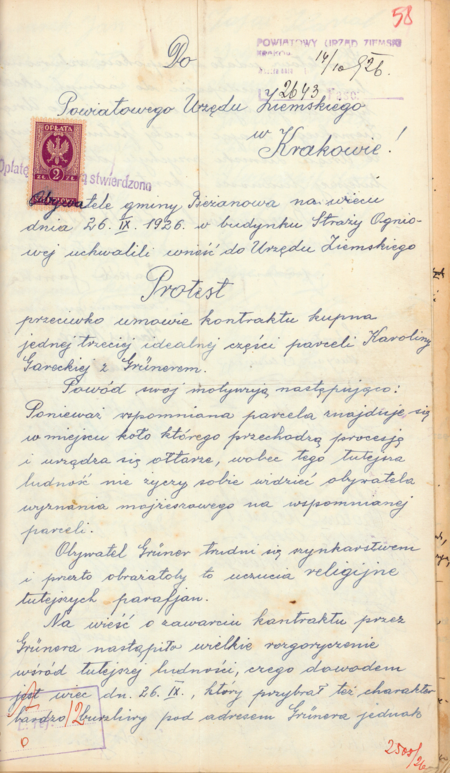 58
Do
POWIATOWY URZĄD ZIEMSKI
14/10 926.
L. 2643
Powiatowego Urzędu Ziemskiego
w
Krakowie!
OPŁATA
2
Opłatę stwierdzono
Obywatele gminy Pieranowa na wiecu
dnia 26. IX. 1926. w budynku Straży Ognio-
wej uchwalili wnieść do Urzędu Ziemskiego
Protest
przeciwko umowie kontraktu kupna
jednej trzeciej idealnej części parceli Karoliny
Gareckiej z Grünerem.
Powód swój motywują następująco:
Ponieważ wspomniana parcela znajduje się
w miejscu koło którego przechodzą procesją
i urządza się ołtarze, wobec tego tutejsza
ludność nie życzy sobie widzieć obywatela
wyznania mojżeszowego na wspomnianej
parceli.
Obywatel Grüner trudni się szynkarstwem
i przeto obrażałoby to uczucia religijne
tutejszych parafjan.
Na wieść o zawarciu kontraktu przez
Grünera nastąpiło wielkie rozgoryczenie
wśród tutejszej ludności, czego dowodem
jest wiec dn. 26. IX., który przybrał też charakter
bardzo burzliwy pod adresem Grünera jednak
2500/26